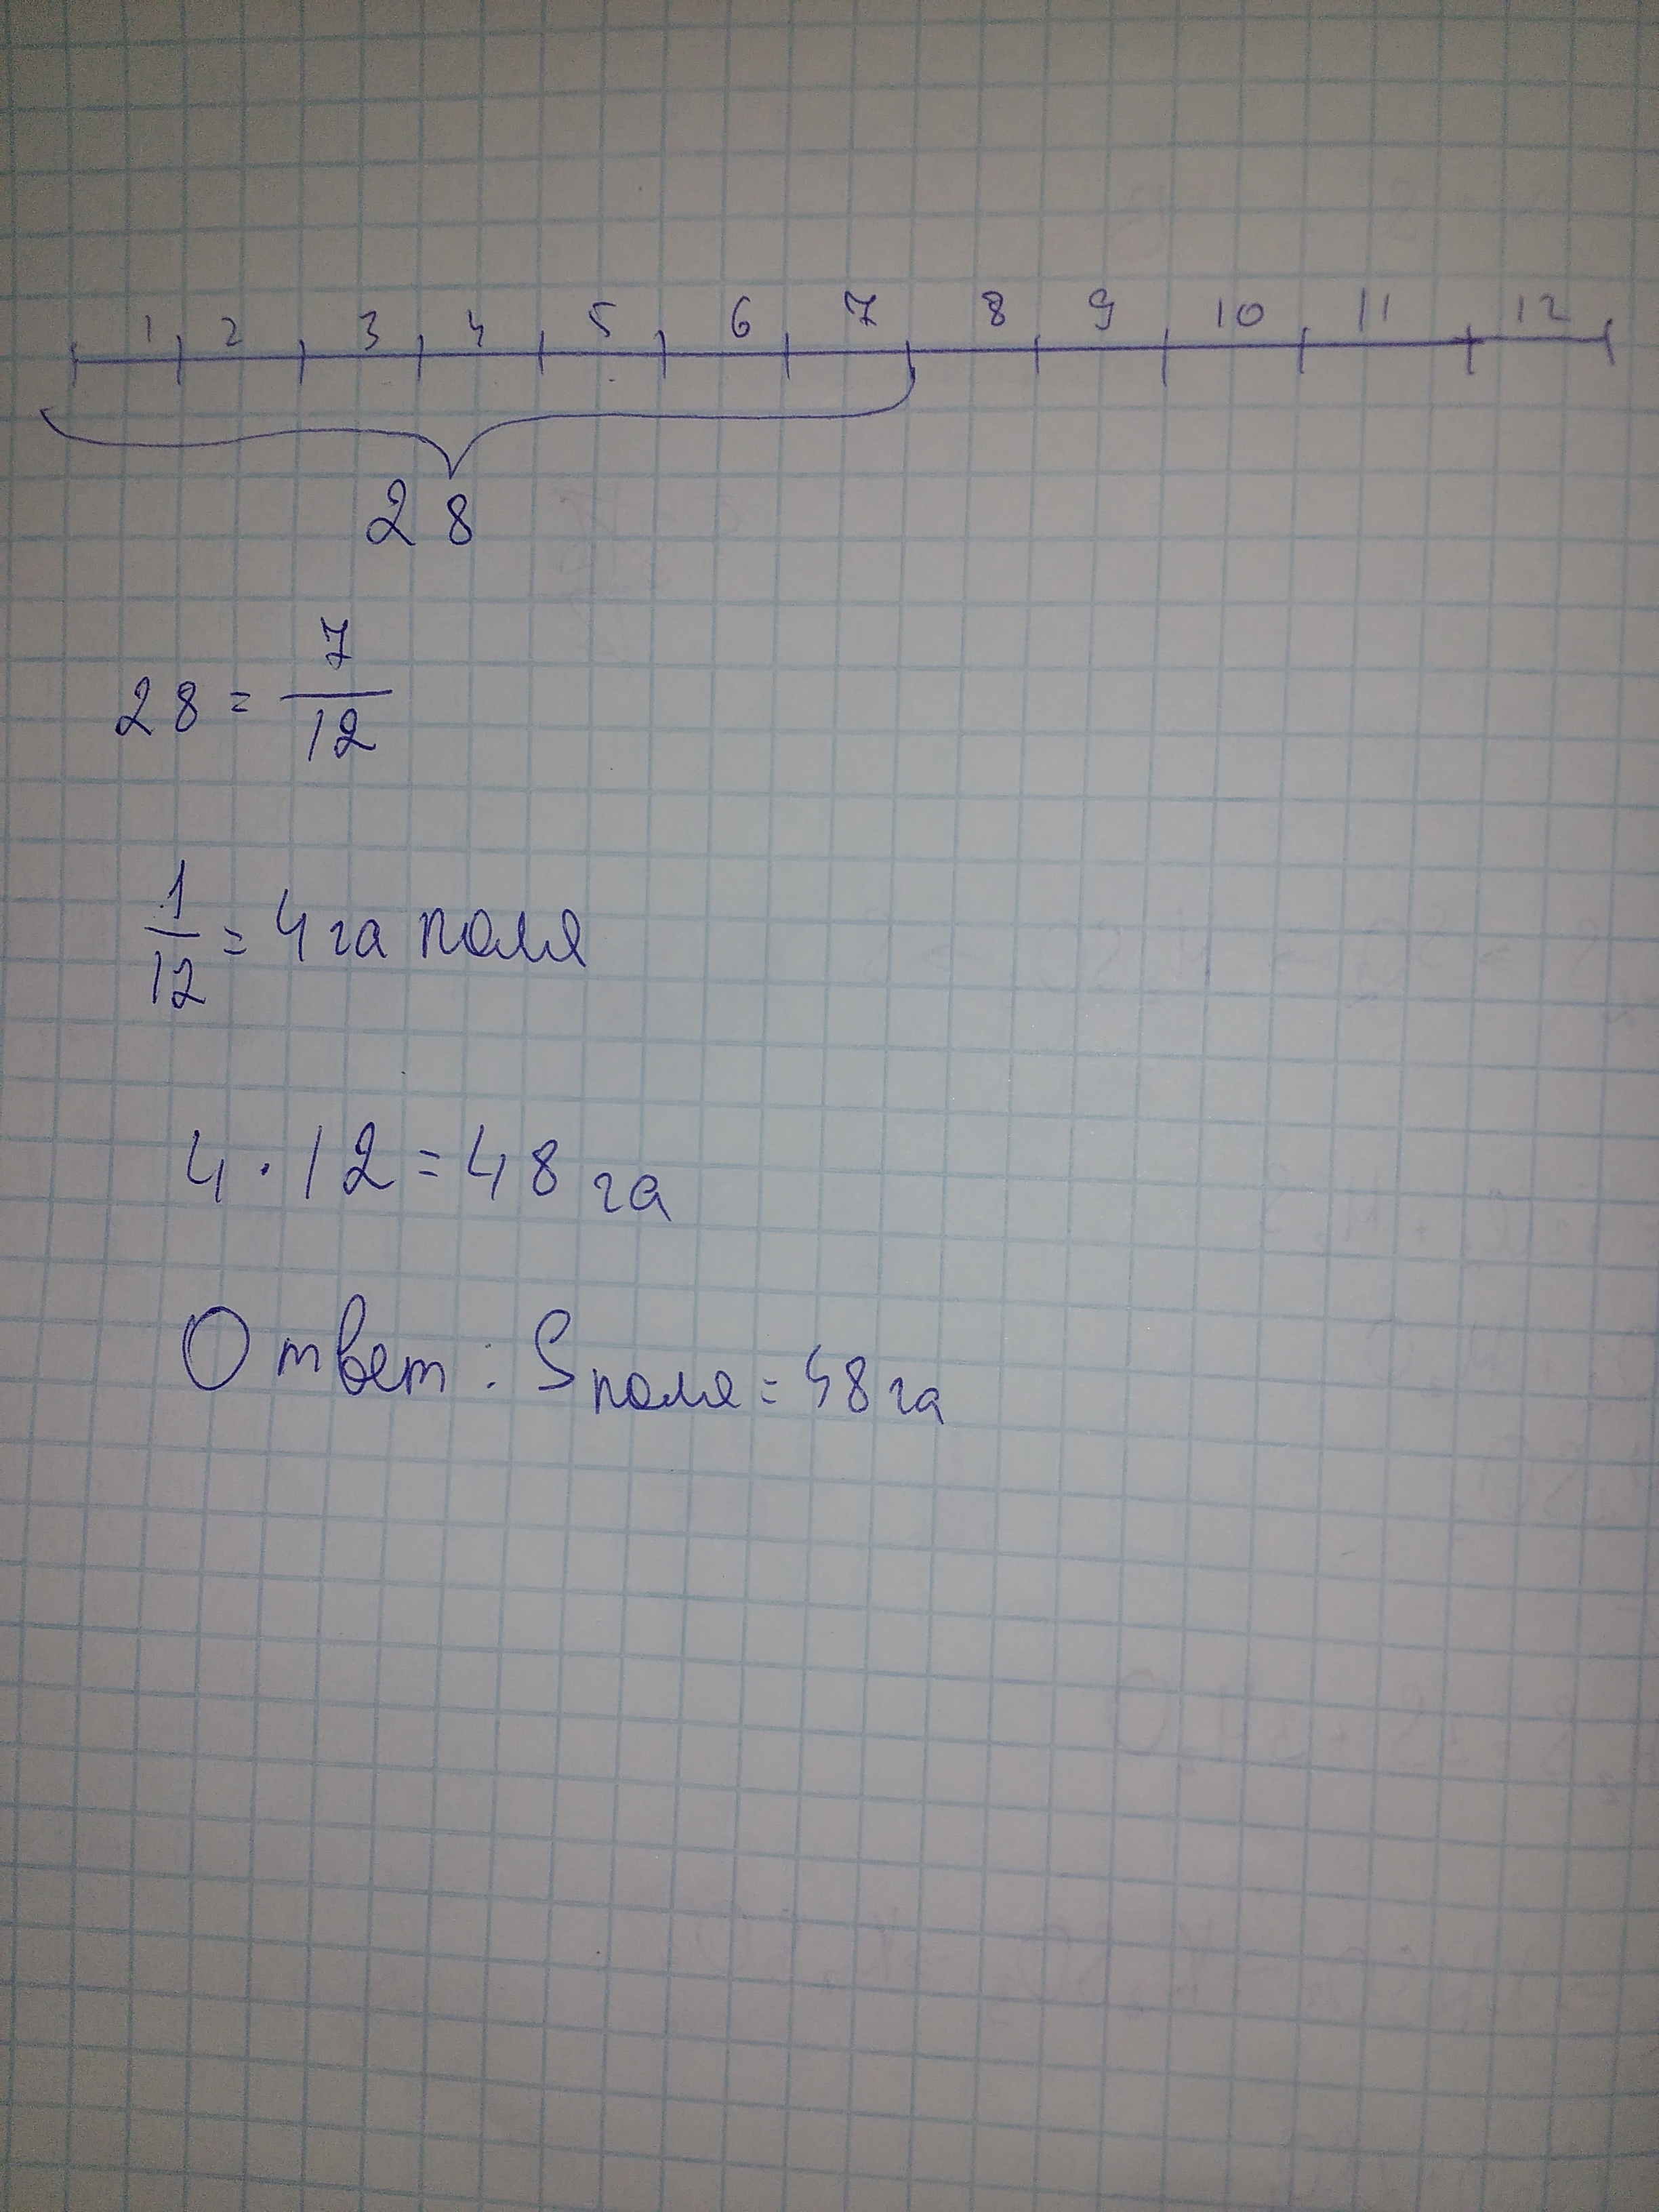 1 2 3 4 5 6 7 8 9 10 11 12
28
28 = 7/12
1/12 = 4 га поля
4 · 12 = 48 га
Ответ: Sполя = 48 га